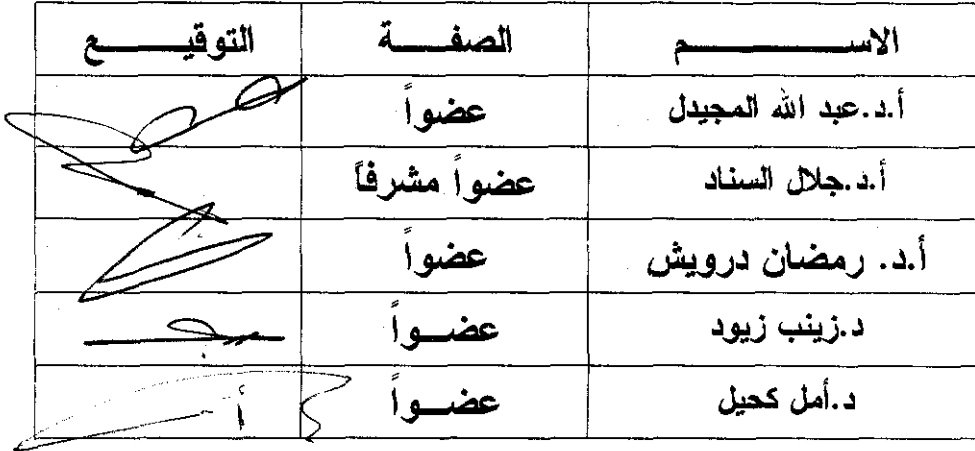 الاســـــــم الصفـــة التوقيـــع
أ.د.عبد الله المجيدل عضواً
أ.د.جلال السناد عضواً مشرفاً
أ.د. رمضان درويش عضواً
د.زينب زيود عضــواً
د.أمل كحيل عضــواً